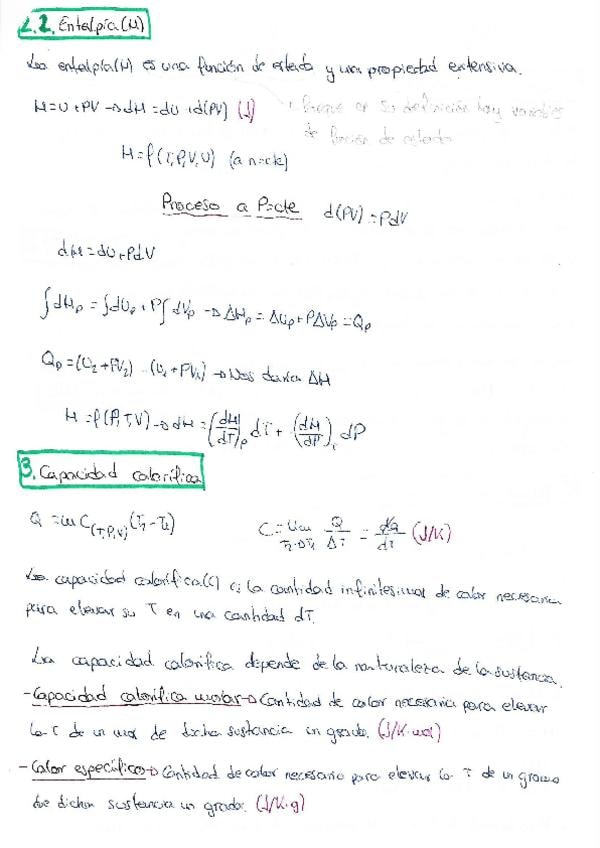 2.2. Entalpía (H)
La entalpía (H) es una función de estado y una propiedad extensiva.
H=U+PV → dH=dU+d(PV) (J) Porque en su definición hay variables
de función de estado
H=f(T,P,V,U) (a n=cte)
Proceso a P=cte d(PV)=PdV
dH=dU+PdV
∫dHp = ∫dUp + P∫dVp → ΔHp = ΔUp + PΔVp = Qp
Qp=(U₂+PV₂)-(U₁+PV₁) → Nos daría ΔH
H=f(P,T,V) → dH = (dH/dT)p dT + (dH/dP) dP
3. Capacidad calorífica
Q = m C(T,P,V) (T₂-T₁) C = lim T₂→T₁ Q/ΔT = dQ/dT (J/K)
La capacidad calorífica (C) es la cantidad infinitesimal de calor necesaria
para elevar su T en una cantidad dT.
La capacidad calorífica depende de la naturaleza de la sustancia.
-Capacidad calorífica molar → Cantidad de calor necesaria para elevar
la T de un mol de dicha sustancia un grado. (J/K·mol)
-Calor específico → Cantidad de calor necesario para elevar la T de un gramo
de dicha sustancia un grado. (J/K·g)